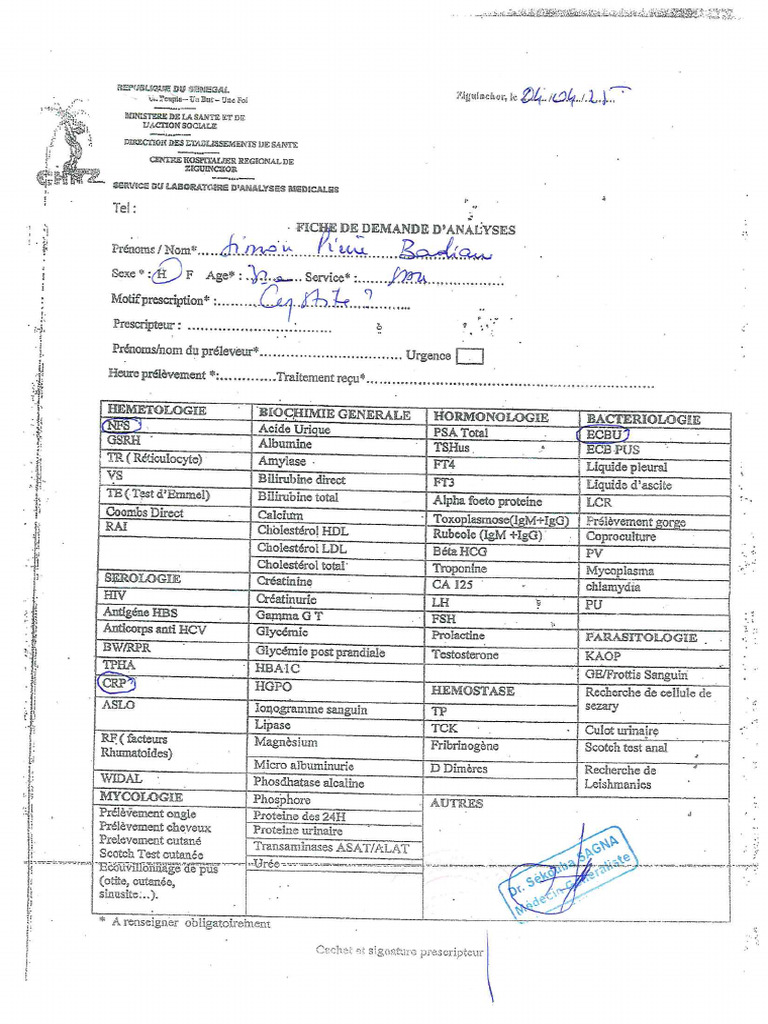 REPUBLIQUE DU SENEGAL
Un Peuple – Un But – Une Foi
MINISTERE DE LA SANTE ET DE
L'ACTION SOCIALE
DIRECTION DES ETABLISSEMENTS DE SANTE
CENTRE HOSPITALIER REGIONAL DE
ZIGUINCHOR
SERVICE DU LABORATOIRE D'ANALYSES MEDICALES
Ziguinchor, le 04/04/25
CHRZ
Tel :
FICHE DE DEMANDE D'ANALYSES
Prénoms / Nom* Simon Pierre Badian
Sexe * : H F Age* : Service* :
Motif prescription* : Cystite ?
Prescripteur :
Prénoms/nom du préleveur* Urgence
Heure prélèvement *: Traitement reçu*
HEMETOLOGIE
NFS
GSRH
TR ( Réticulocyte)
VS
TE ( Test d'Emmel)
Coombs Direct
RAI
SEROLOGIE
HIV
Antigéne HBS
Anticorps anti HCV
BW/RPR
TPHA
CRP
ASLO
RF ( facteurs
Rhumatoides)
WIDAL
MYCOLOGIE
Prélèvement ongle
Prélèvement cheveux
Prelevement cutané
Scotch Test cutanée
Ecouvillonnage de pus
(otite, cutanée,
sinusite...).
BIOCHIMIE GENERALE
Acide Urique
Albumine
Amylase
Bilirubine direct
Bilirubine total
Calcium
Cholestérol HDL
Cholestérol LDL
Cholestérol total
Créatinine
Créatinurie
Gamma G T
Glycémie
Glycémie post prandiale
HBA1C
HGPO
Ionogramme sanguin
Lipase
Magnèsium
Micro albuminurie
Phosdhatase alcaline
Phosphore
Proteine des 24H
Proteine urinaire
Transaminases ASAT/ALAT
Urée
HORMONOLOGIE
PSA Total
TSHus
FT4
FT3
Alpha foeto proteine
Toxoplasmose(IgM+IgG)
Rubeole (IgM +IgG)
Béta HCG
Troponine
CA 125
LH
FSH
Prolactine
Testosterone
HEMOSTASE
TP
TCK
Fribrinogène
D Dimères
AUTRES
BACTERIOLOGIE
ECBU
ECB PUS
Liquide pleural
Liquide d'ascite
LCR
Prélèvement gorge
Coproculture
PV
Mycoplasma
chlamydia
PU
PARASITOLOGIE
KAOP
GE/Frottis Sanguin
Recherche de cellule de
sezary
Culot urinaire
Scotch test anal
Recherche de
Leishmanies
Dr. Sékouba SAGNA
Médecin Généraliste
* A renseigner obligatoirement
Cachet et signature prescripteur